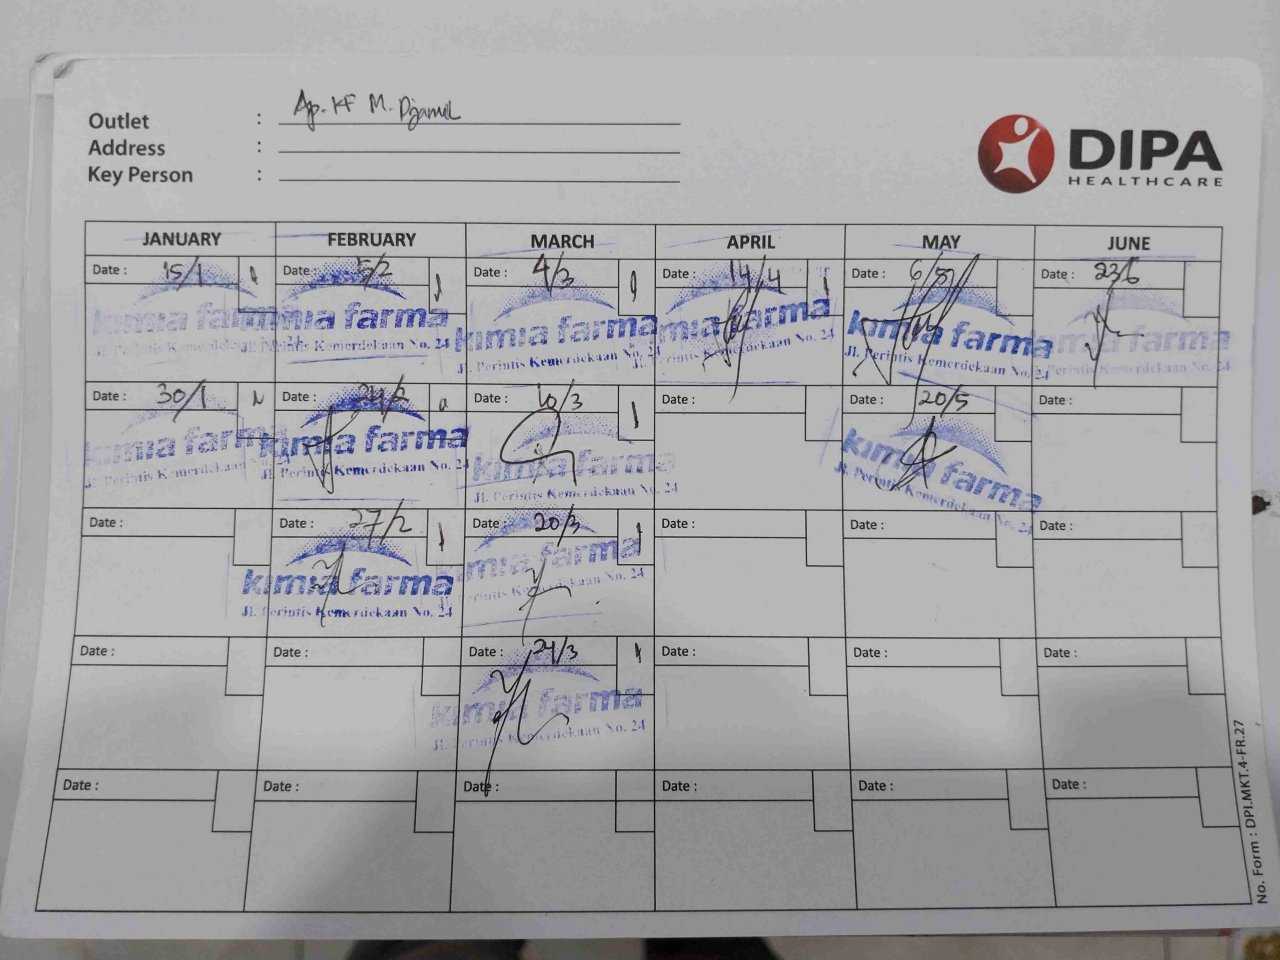 Outlet : Ap. KF M. Djamil
Address :
Key Person :
DIPA
HEALTHCARE
JANUARY FEBRUARY MARCH APRIL MAY JUNE
Date : 15/1 Date : 5/2 Date : 4/3 Date : 14/4 Date : 6/5 Date : 23/6
kimia farma kimia farma kimia farma kimia farma kimia farma kimia farma
Jl. Perintis Kemerdekaan Jl. Perintis Kemerdekaan No. 24 Jl. Perintis Kemerdekaan No. 24 Perintis Kemerdekaan Jl. Perintis Kemerdekaan No. 24 Perintis Kemerdekaan No. 24
Date : 30/1 Date : 24/2 Date : 10/3 Date : Date : 20/5 Date :
kimia farma kimia farma kimia farma kimia farma
Jl. Perintis Kemerdekaan Jl. Perintis Kemerdekaan No. 24 Jl. Perintis Kemerdekaan No. 24 Jl. Perintis Kemerdekaan No. 24
Date : Date : 27/2 Date : 20/3 Date : Date : Date :
kimia farma kimia farma
Jl. Perintis Kemerdekaan No. 24 Perintis Kemerdekaan No. 24
Date : Date : Date : 24/3 Date : Date : Date :
kimia farma
Jl. Perintis Kemerdekaan No. 24
Date : Date : Date : Date : Date : Date :
No. Form : DPI.MKT.4-FR.27